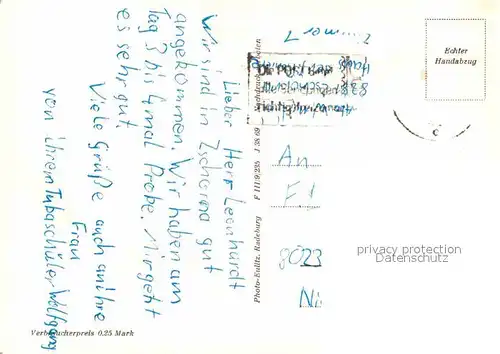 Lieber Herr Leonhardt
Wir sind in Zschorna gut
angekommen. Wir haben am
Tag 3 bis 4mal Probe. Mir geht
es sehr gut.
Viele Grüße auch an ihre
Frau
von ihrem Tubaschüler Wolfgang
Verbraucherpreis 0,25 Mark
Photo-Eulitz, Radeburg
F III/9/235 J 35 69
Zimmer 1
Echter
Handabzug
An
8023
privacy protection
Datenschutz